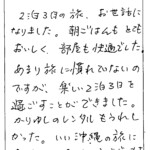 2泊3日の旅、お世話に
なりました。朝ごはんもとても
おいしく、部屋も快適でした。
あまり旅に慣れてないので
すが、楽しい2泊3日を
過ごすことができました。
かりゆしのレンタルもうれし
かった。いい沖縄の旅に